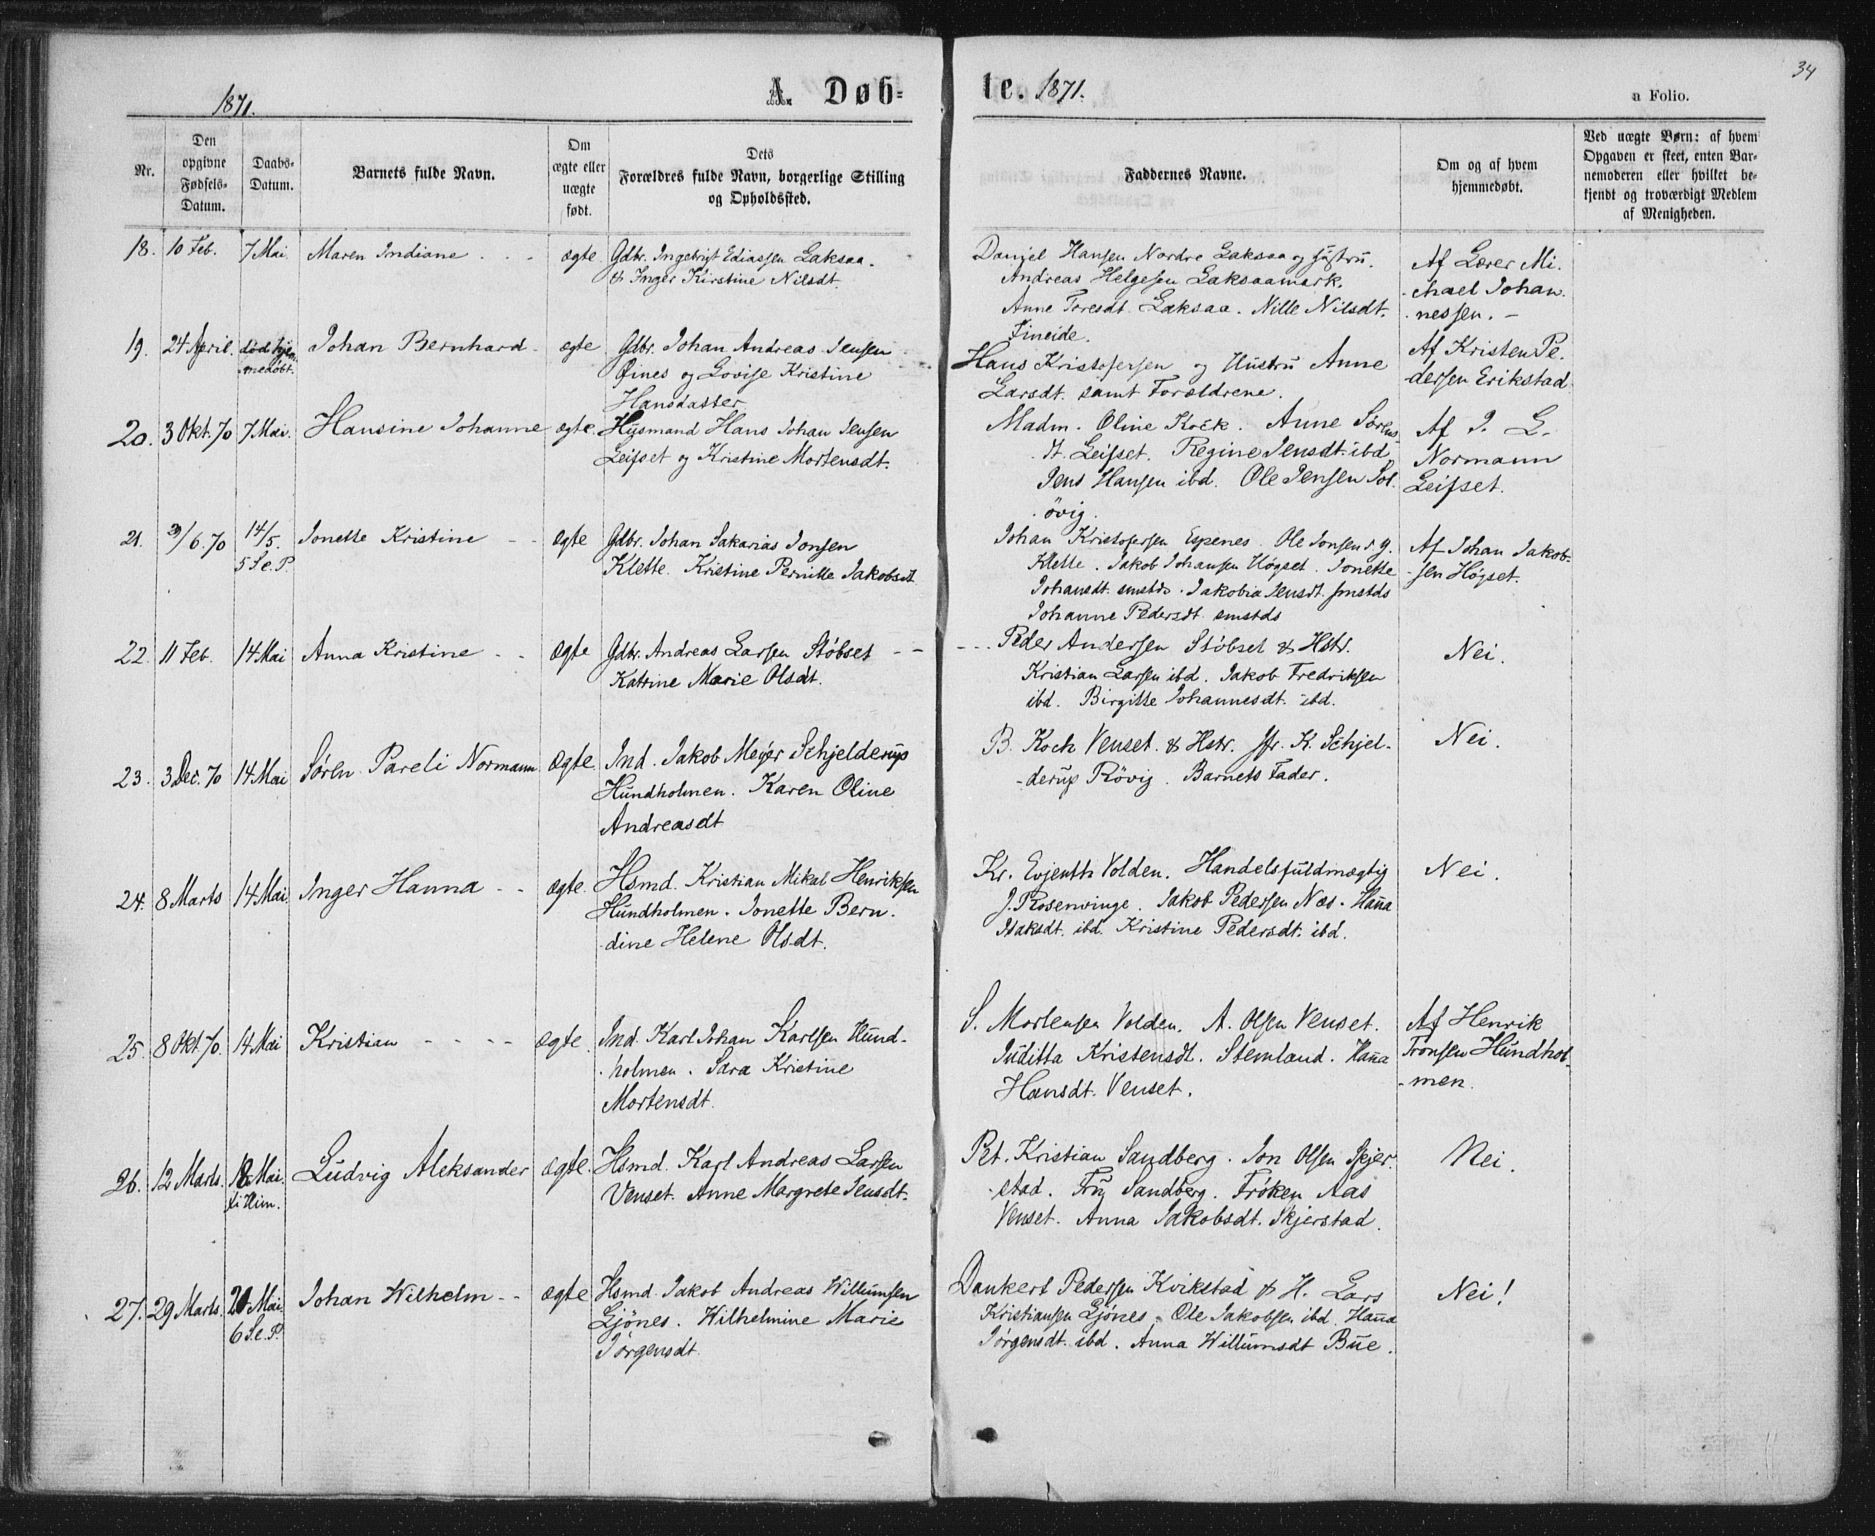 34
1871.
A. Døb-
te. 1871.
a Folio.
Nr.
Den
opgivne
Fødsels-
Datum.
Daabs-
Datum.
Barnets fulde Navn.
Om
ægte eller
uægte
født.
Dets
Forældres fulde Navn, borgerlige Stilling
og Opholdssted.
Faddernes Navne.
Om og af hvem
hjemmedøbt.
Ved uægte Børn: af hvem
Opgaven er skeet, enten Bar-
nemoderen eller hvilket be-
kjendt og troværdigt Medlem
af Menigheden.
18. 10 Feb. 7 Mai Maren Indiane - - - ægte Gdbr. Ingebrigt Ediassen Laksaa.
& Inger Kirstine Nilsdt.
Daniel Hansen Nordre Laksaa og Hustru.
Andreas Helgesen Laksaamark.
Anne Toresdt. Laksaa. Nille Nilsdt.
Fineide.
Af Lærer Mi-
chael Johan-
nessen. -
19. 24 April. død hjem-
medøbt. Johan Bernhard - ægte Gdbr. Johan Andreas Jensen
Øines og Lovise Kristine
Hansdatter
Hans Kristofersen og Hustru Anne
Larsdt. samt Forældrene.
Af Kristen Pe-
dersen Erikstad
20. 3 Okt. 70 7 Mai. Hansine Johanne ægte Husmand Hans Johan Jensen
Leifset og Kristine Mortensdt.
Madm. Oline Kock. Anne Sørens-
dt. Leifset. Regine Jensdt. ibd.
Jens Hansen ibd. Ole Jensen Sol-
øvig.
Af J. L.
Normann
Leifset.
21. /6. 70 14/5.
5 S. e. P. Jonette Kristine - - ægte Gdbr. Johan Sakarias Jonsen
Klette. Kristine Pernille Jakobsdt
Johan Kristofersen Espenes. Ole Jonsen d. y.
Klette. Jakob Johansen Høgset. Jonette
Johansdt. smstds. Jakobia Jensdt. smstds
Johanne Pedersdt. smstds
Af Johan Jakob-
sen Høgset.
22. 11 Feb. 14 Mai Anna Kristine - - ægte Gdbr. Andreas Larsen Støbset - -
Katrine Marie Olsdt.
- - - Peder Andersen Støbset & Hstr.
Kristian Larsen ibd. Jakob Fredriksen
ibd. Birgitte Johannesdt. ibd.
Nei.
23. 3 Dec. 70 14 Mai Søren Pareli Normann ægte Ind. Jakob Mejer Schjelderup
Hundholmen. Karen Oline
Andreasdt
B. Koch Venset. & Hstr. Jfr. K. Schjel-
derup Røvig. Barnets Fader.
Nei.
24. 8 Marts 14 Mai Inger Hanna - - ægte. Hsmd. Kristian Mikal Henriksen
Hundholmen. Jonette Bern-
dine Helene Olsdt.
Kr. Evjenth Volden. Handelsfuldmægtig
J. Rosenvinge. Jakob Pedersen Næs. Hanna
Isaksdt. ibd. Kristine Pedersdt. ibd.
Nei.
25. 8 Okt. 70. 14 Mai Kristian - - - - ægte. Ind. Karl Johan Karlsen Hund-
holmen. Sara Kristine
Mortensdt.
S. Mortensen Volden. A. Olsen Venset.
Juditta Kristensdt. Stemland. Hanna
Hansdt. Venset.
Af Henrik
Tronsen Hundhol-
men.
26. 12 Marts. 18 Mai.
Kr. Him. Ludvig Aleksander ægte. Hsmd. Karl Andreas Larsen
Venset. Anne Margrete Jensdt.
Pet. Kristian Sandberg. Jon Olsen Skjer-
stad. Fru Sandberg. Frøken Aas
Venset. Anna Jakobsdt. Skjerstad.
Nei.
27. 29 Marts. 21 Mai
6 S. e. P. Johan Wilhelm - - ægte Hsmd. Jakob Andreas Willumsen
Ljønes. Wilhelmine Marie
Jørgensdt.
Dankert Pedersen Kvikstad & H. Lars
Kristiansen Ljønes. Ole Jakobsen ibd. Hanna
Jørgensdt. ibd. Anna Willumsdt Bue.
Nei!